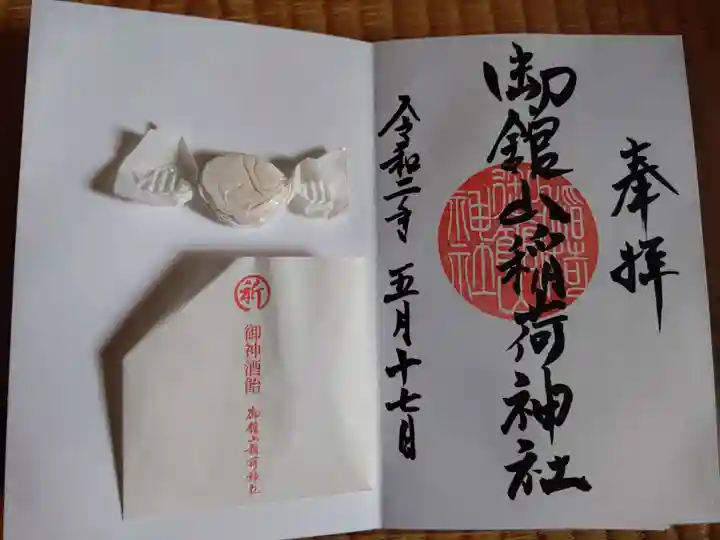 奉拝
御館山稲荷神社
令和二年五月十七日
祈
御神酒飴
御館山稲荷神社